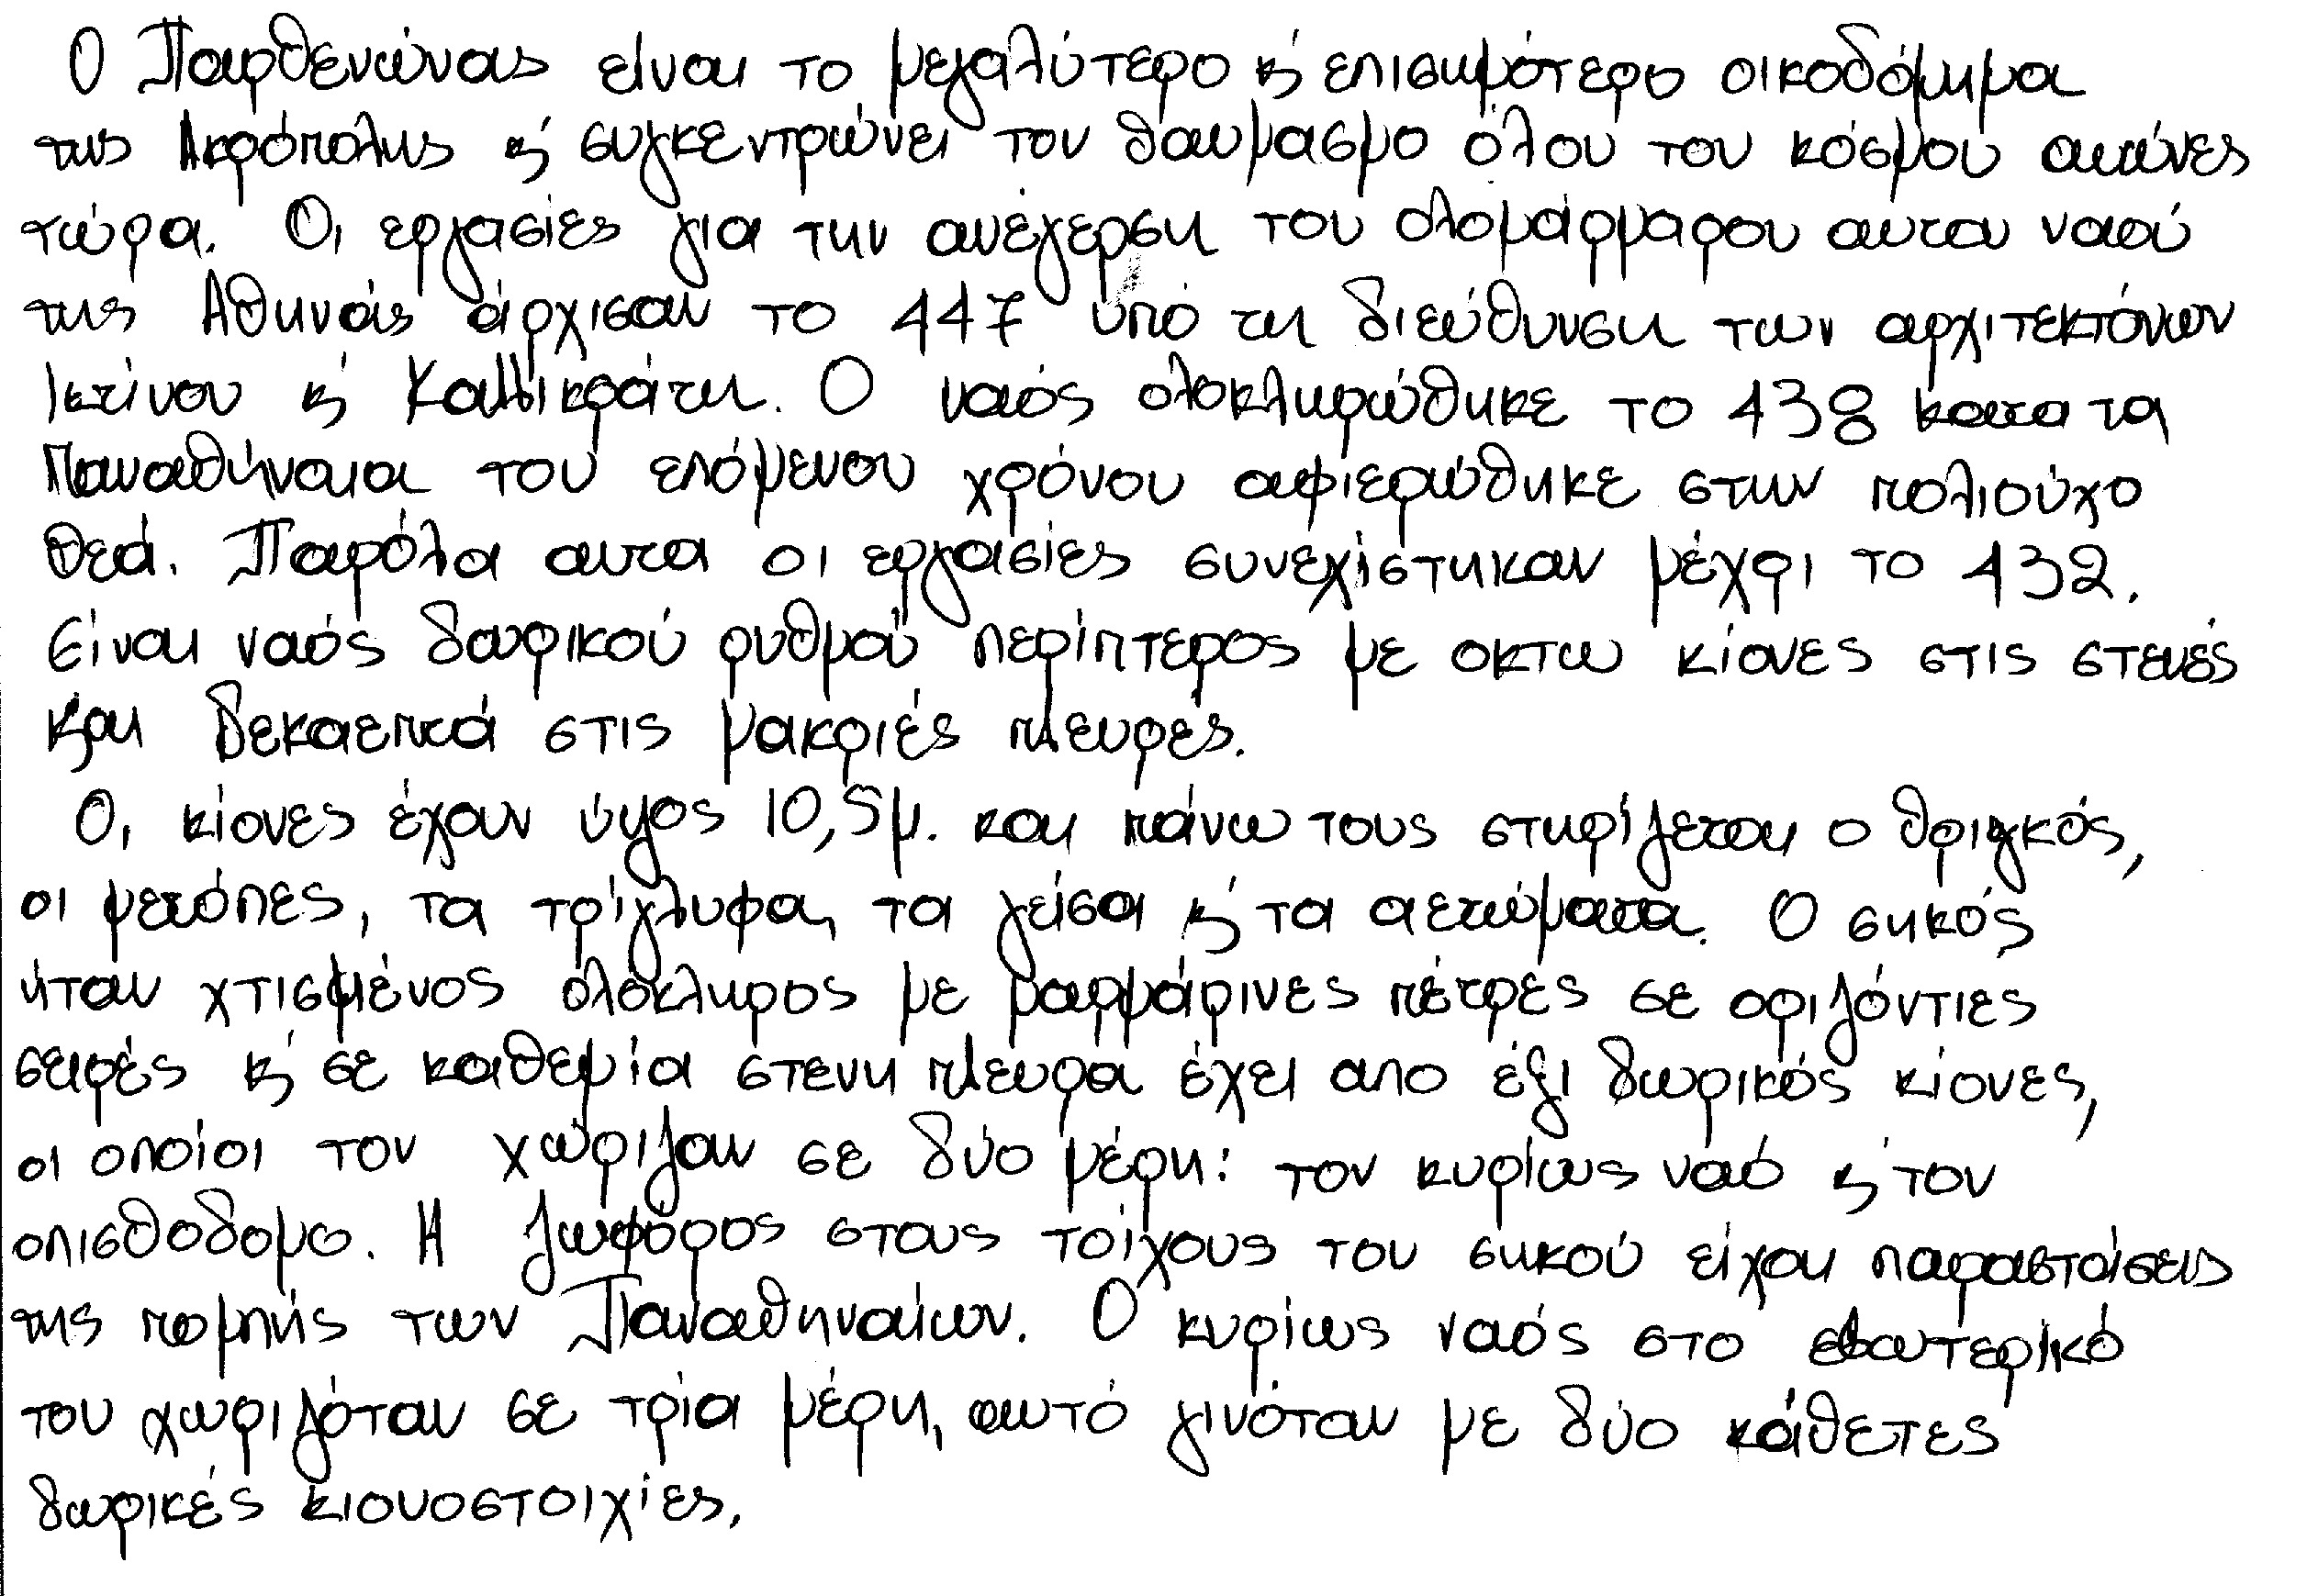 Ο Παρθενώνας είναι το μεγαλύτερο κ' επισημότερο οικοδόμημα
της Ακρόπολης κ' συγκεντρώνει τον θαυμασμο όλου του κόσμου αιώνες
τώρα. Οι εργασίες για την ανέγερση του ολομάρμαρου αυτου ναού
της Αθηνάς άρχισαν το 447 υπό τη διεύθυνση των αρχιτεκτόνων
Ικτίνου κ' Καλλικράτη. Ο ναός ολοκληρώθηκε το 438 κατα τα
Παναθήναια του επόμενου χρόνου αφιερώθηκε στην πολιούχο
θεά. Παρόλα αυτα οι εργασίες συνεχίστηκαν μέχρι το 432.
Είναι ναός δωρικού ρυθμού περίπτερος με οκτω κίονες στις στενές
και δεκαεπτά στις μακριές πλευρές.
Οι κίονες έχουν ύψος 10,5μ. και πάνω τους στηρίζεται ο θριγκός,
οι μετόπες, τα τρίγλυφα, τα γείσα κ' τα αετώματα. Ο σηκός
ήταν χτισμένος όλοκληρος με μαρμάρινες πέτρες σε οριζόντιες
σειρές κ' σε καθεμία στενη πλευρα έχει απο έξι δωρικός κίονες,
οι οποίοι τον χώριζαν σε δύο μέρη: τον κυρίως ναό κ' τον
οπισθοδομο. Η ζωφόρος στους τοίχους του σηκού είχαι παραστάσεις
της πομπής των Παναθηναίων. Ο κυρίως ναός στο εσωτερικό
του χωριζόταν σε τρία μέρη, αυτό γινόταν με δύο κάθετες
δωρικές κιονοστοιχίες.